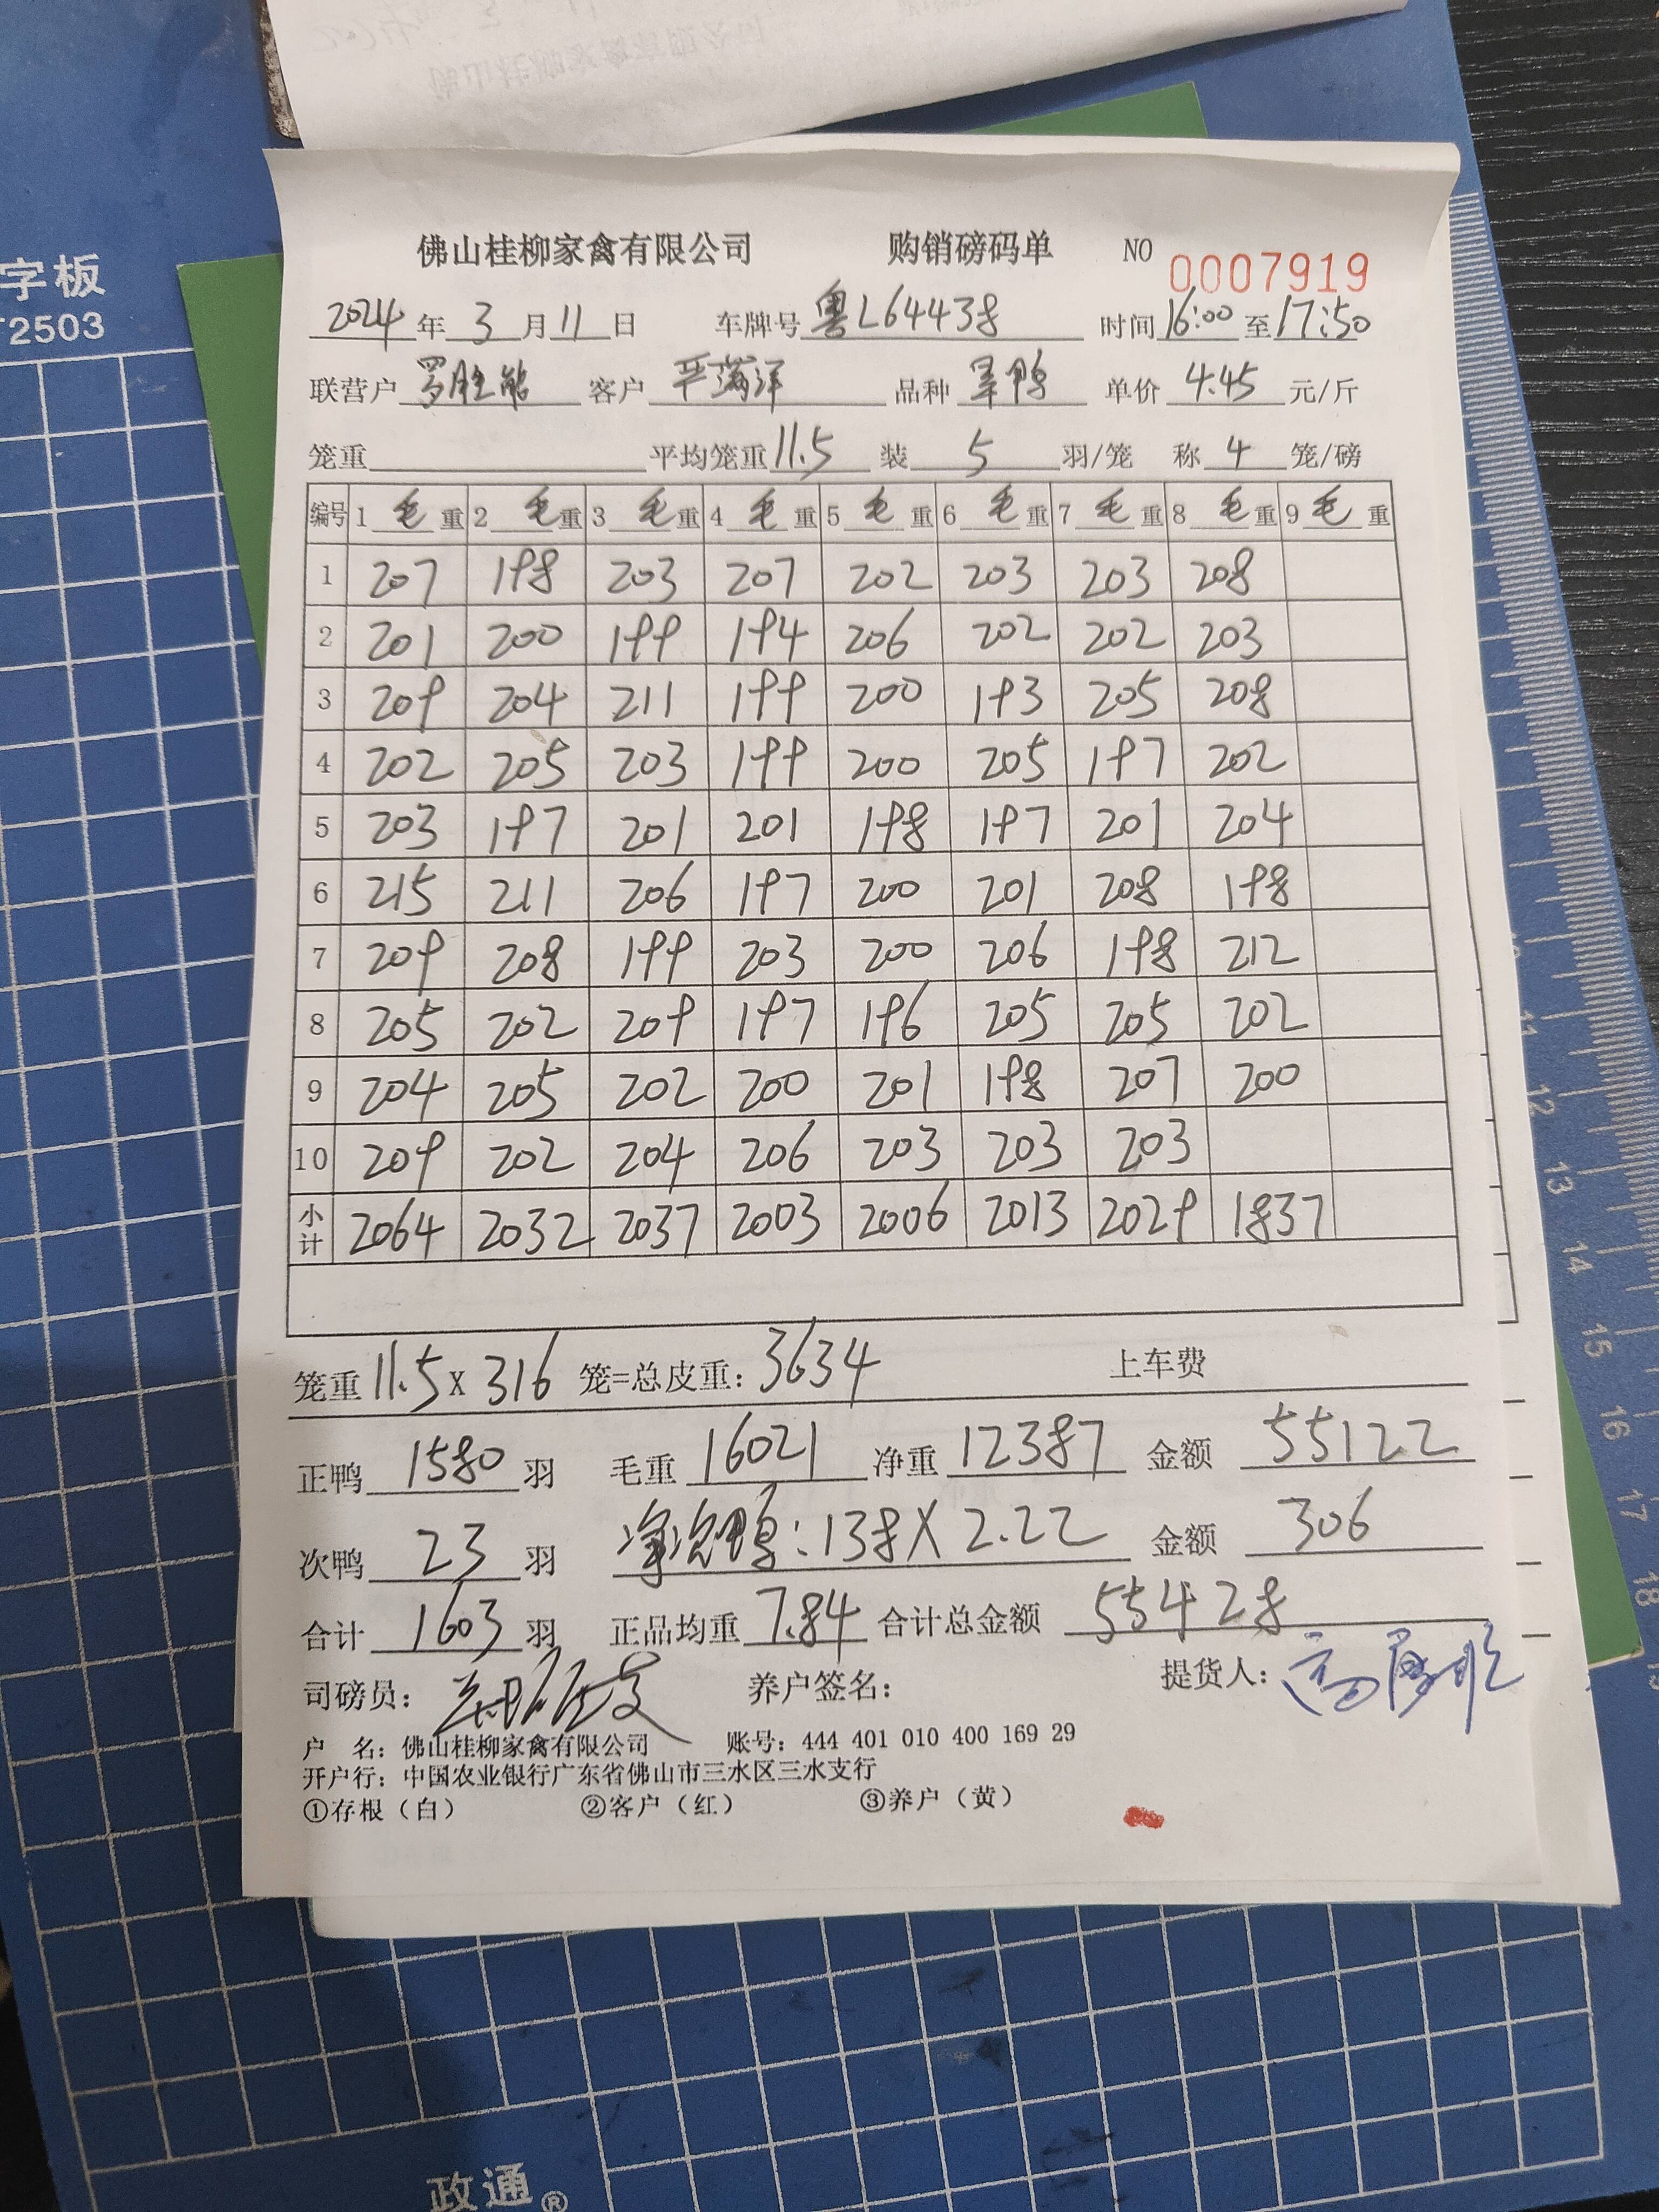 字板
T2503
佛山桂柳家禽有限公司 购销磅码单 NO 0007919
2024年3月11日 车牌号 粤L64438 时间16:00至17:50
联营户 罗胜能 客户 品种 单价 4.45 元/斤
笼重 平均笼重11.5 装 5 羽/笼 称 4 笼/磅
编号 1 毛 重 2 毛重 3 毛重 4 毛 重 5 毛 重 6 毛 重 7 毛 重 8 毛 重 9 毛 重
1 207 198 203 207 202 203 203 208
2 201 200 199 194 206 202 202 203
3 209 204 211 199 200 193 205 208
4 202 205 203 199 200 205 197 202
5 203 197 201 201 198 197 201 204
6 215 211 206 197 200 201 208 198
7 209 208 199 203 200 206 198 212
8 205 202 209 197 196 205 205 202
9 204 205 202 200 201 198 207 200
10 209 202 204 206 203 203 203
小计 2064 2032 2037 2003 2006 2013 2029 1837
笼重 11.5 X 316 笼=总皮重: 3634 上车费
正鸭 1580 羽 毛重 16021 净重 12387 金额 55122
次鸭 23 羽 净次鸭: 138X2.22 金额 306
合计 1603 羽 正品均重 7.84 合计总金额 55428
司磅员: 养户签名: 提货人:
户 名: 佛山桂柳家禽有限公司 账号: 444 401 010 400 169 29
开户行: 中国农业银行广东省佛山市三水区三水支行
①存根(白) ②客户(红) ③养户(黄)
11
12
13
14
15
16
17
18
政通®